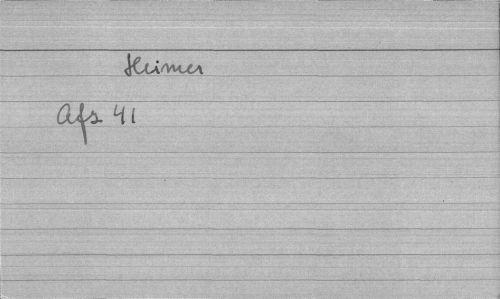 Heimer
Afs 41